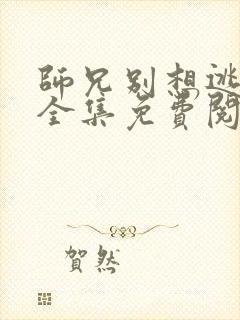 師兄別想逃
全集免費閱
賀然